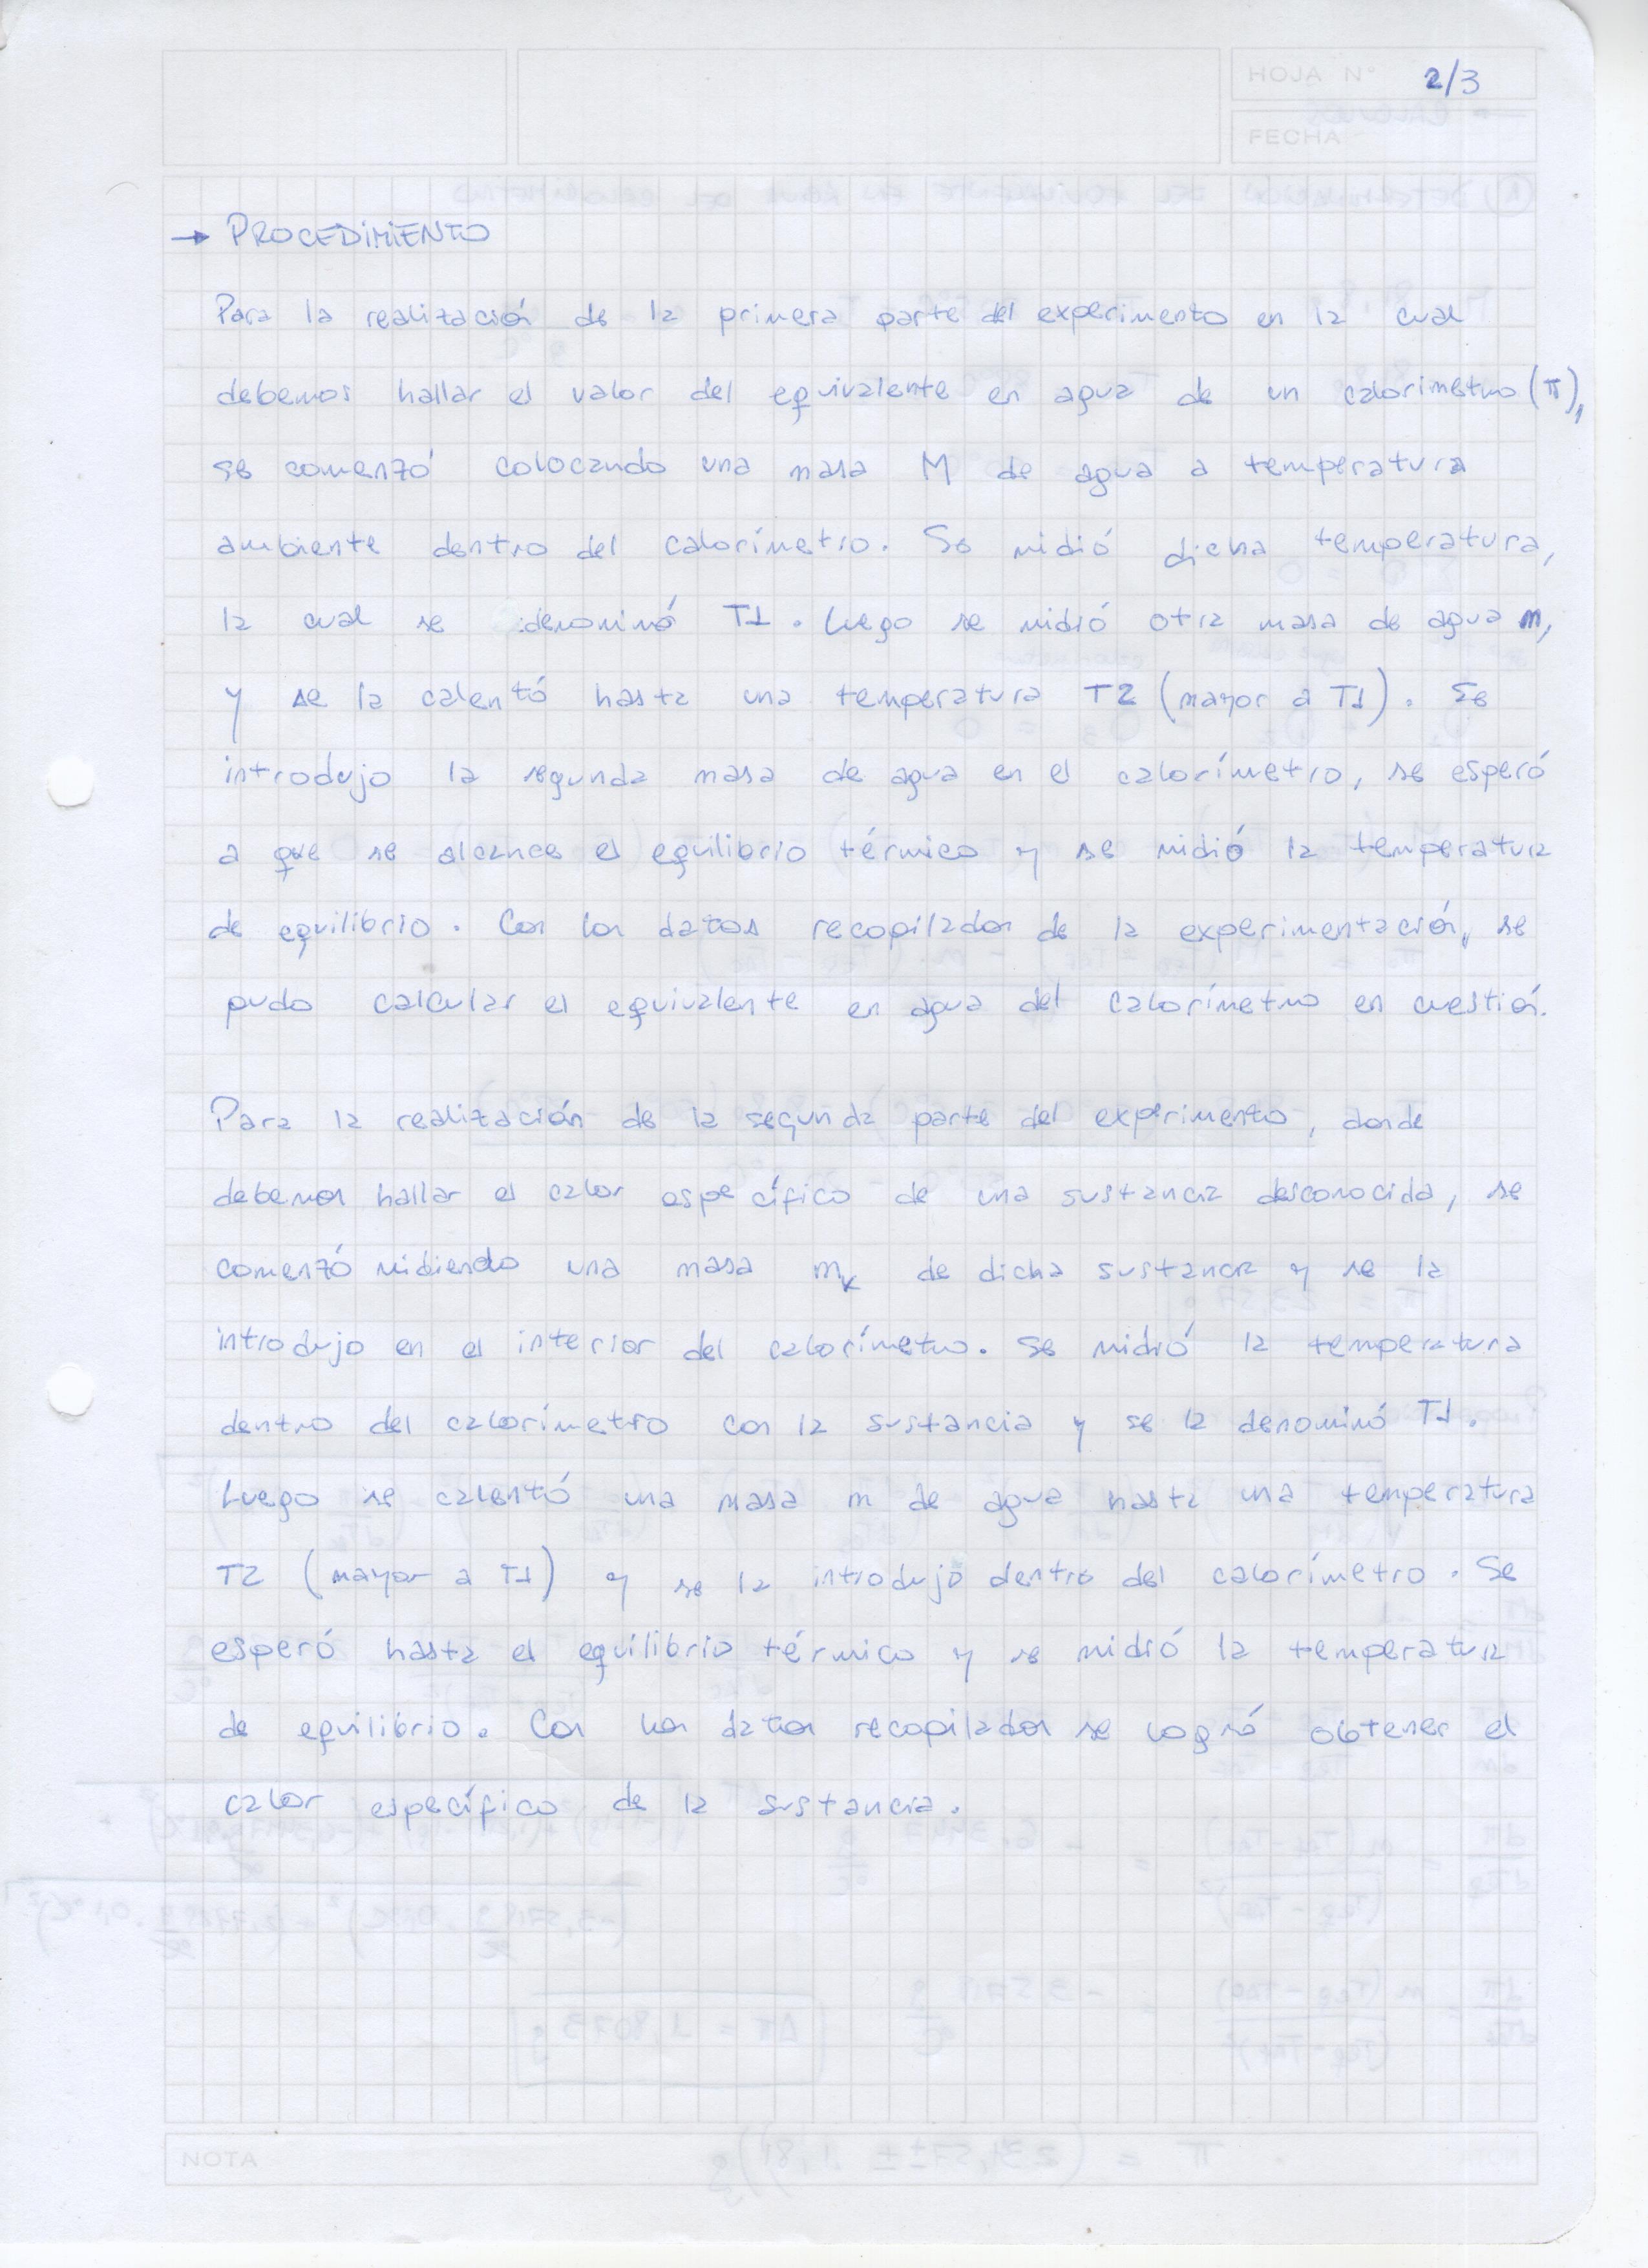 HOJA N° 2/3
FECHA
→ PROCEDIMIENTO
Para la realización de la primera parte del experimento en la cual
debemos hallar el valor del equivalente en agua de un calorimetro (π),
se comenzó colocando una masa M de agua a temperatura
ambiente dentro del calorímetro. Se midió dicha temperatura,
la cual se denominó T1. Luego se midió otra masa de agua m,
y se la calentó hasta una temperatura T2 (mayor a T1). Se
introdujo la segunda masa de agua en el calorímetro, se esperó
a que se alcance el equilibrio térmico y se midió la temperatura
de equilibrio. Con los datos recopilados de la experimentación, se
pudo calcular el equivalente en agua del calorímetro en cuestión.
Para la realización de la segunda parte del experimento, donde
debemos hallar el calor específico de una sustancia desconocida, se
comenzó midiendo una masa mx de dicha sustancia y se la
introdujo en el interior del calorímetro. Se midió la temperatura
dentro del calorímetro con la sustancia y se la denominó T1.
Luego se calentó una masa m de agua hasta una temperatura
T2 (mayor a T1) y se la introdujo dentro del calorímetro. Se
esperó hasta el equilibrio térmico y se midió la temperatura
de equilibrio. Con los datos recopilados se logró obtener el
calor específico de la sustancia.
NOTA